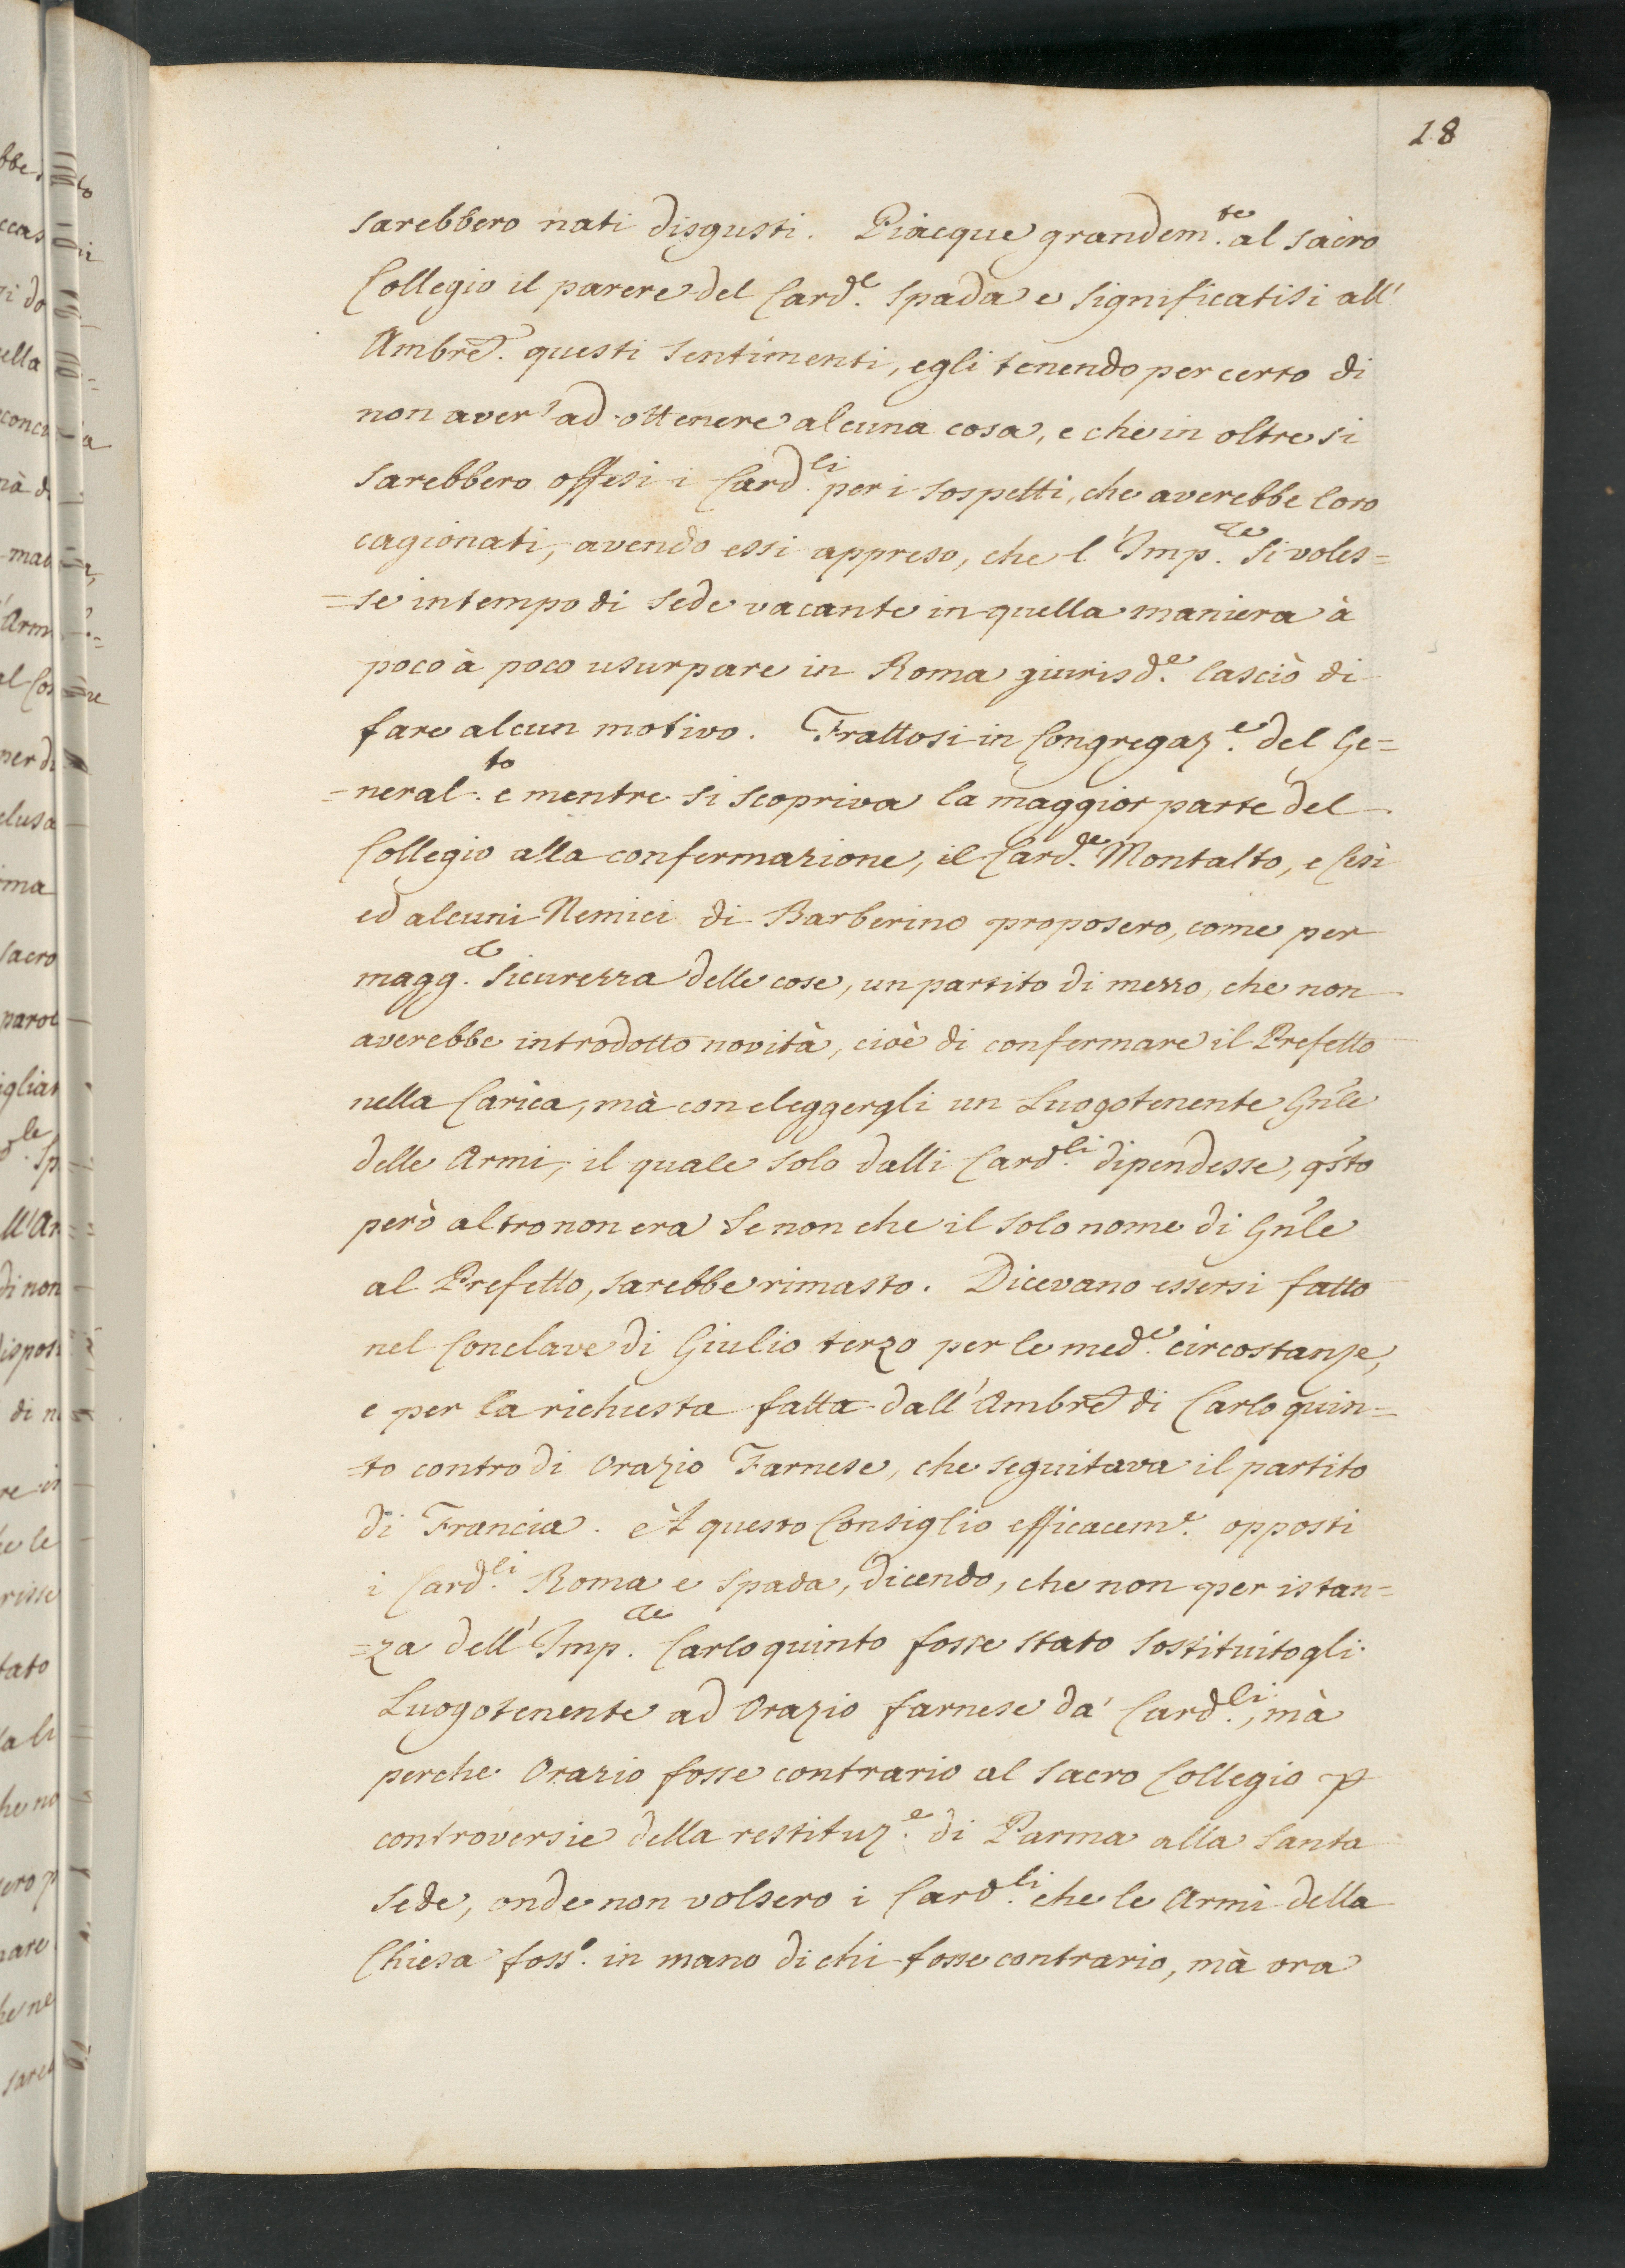 18
sarebbero nati disgusti. Piacque grandem.te al sacro
Collegio il parere del Card.e Spada e significatisi all'
Ambre. questi sentimenti, egli tenendo per certo di
non aver' ad ottenere alcuna cosa, e che in oltre si
sarebbero offesi i Card.li per i sospetti, che averebbe loro
cagionati, avendo essi appreso, che l'Imp.re si voles=
=se in tempo di sede vacante in quella maniera à
poco à poco usurpare in Roma giurisd.e lasciò di
fare alcun motivo. Trattosi in Congregaz.e del Ge=
=neral.to e mentre si scopriva la maggior parte del
Collegio alla confermazione, il Card.le Montalto, e Cesi
ed alcuni Nemici di Barberino proposero, come per
magg.e sicurezza delle cose, un partito di mezzo, che non
averebbe introdotto novità, cioè di confermare il Prefetto
nella Carica, mà con eleggergli un Luogotenente Gn'le
delle Armi, il quale solo dalli Card.li dipendesse, q'sto
però altro non era se non che il solo nome di Gn'le
al Prefetto, sarebbe rimasto. Dicevano essersi fatto
nel Conclave di Giulio terzo per le med.e circostanze,
e per la richiesta fatta dall'Ambre di Carlo quin=
=to contro di Orazio Farnese, che seguitava il partito
di Francia. èt questo Consiglio efficacem.e opposti
i Card.li Roma e Spada, dicendo, che non per istan=
=za dell'Imp.re Carlo quinto fosse stato sostituitogli
Luogotenente ad Orazio farnese da' Card.li, mà
perche Orazio fosse contrario al sacro Collegio p
controversie della restituz.e di Parma alla Santa
Sede, onde non volsero i Card.li che le Armi della
Chiesa foss.o in mano di chi fosse contrario, mà ora